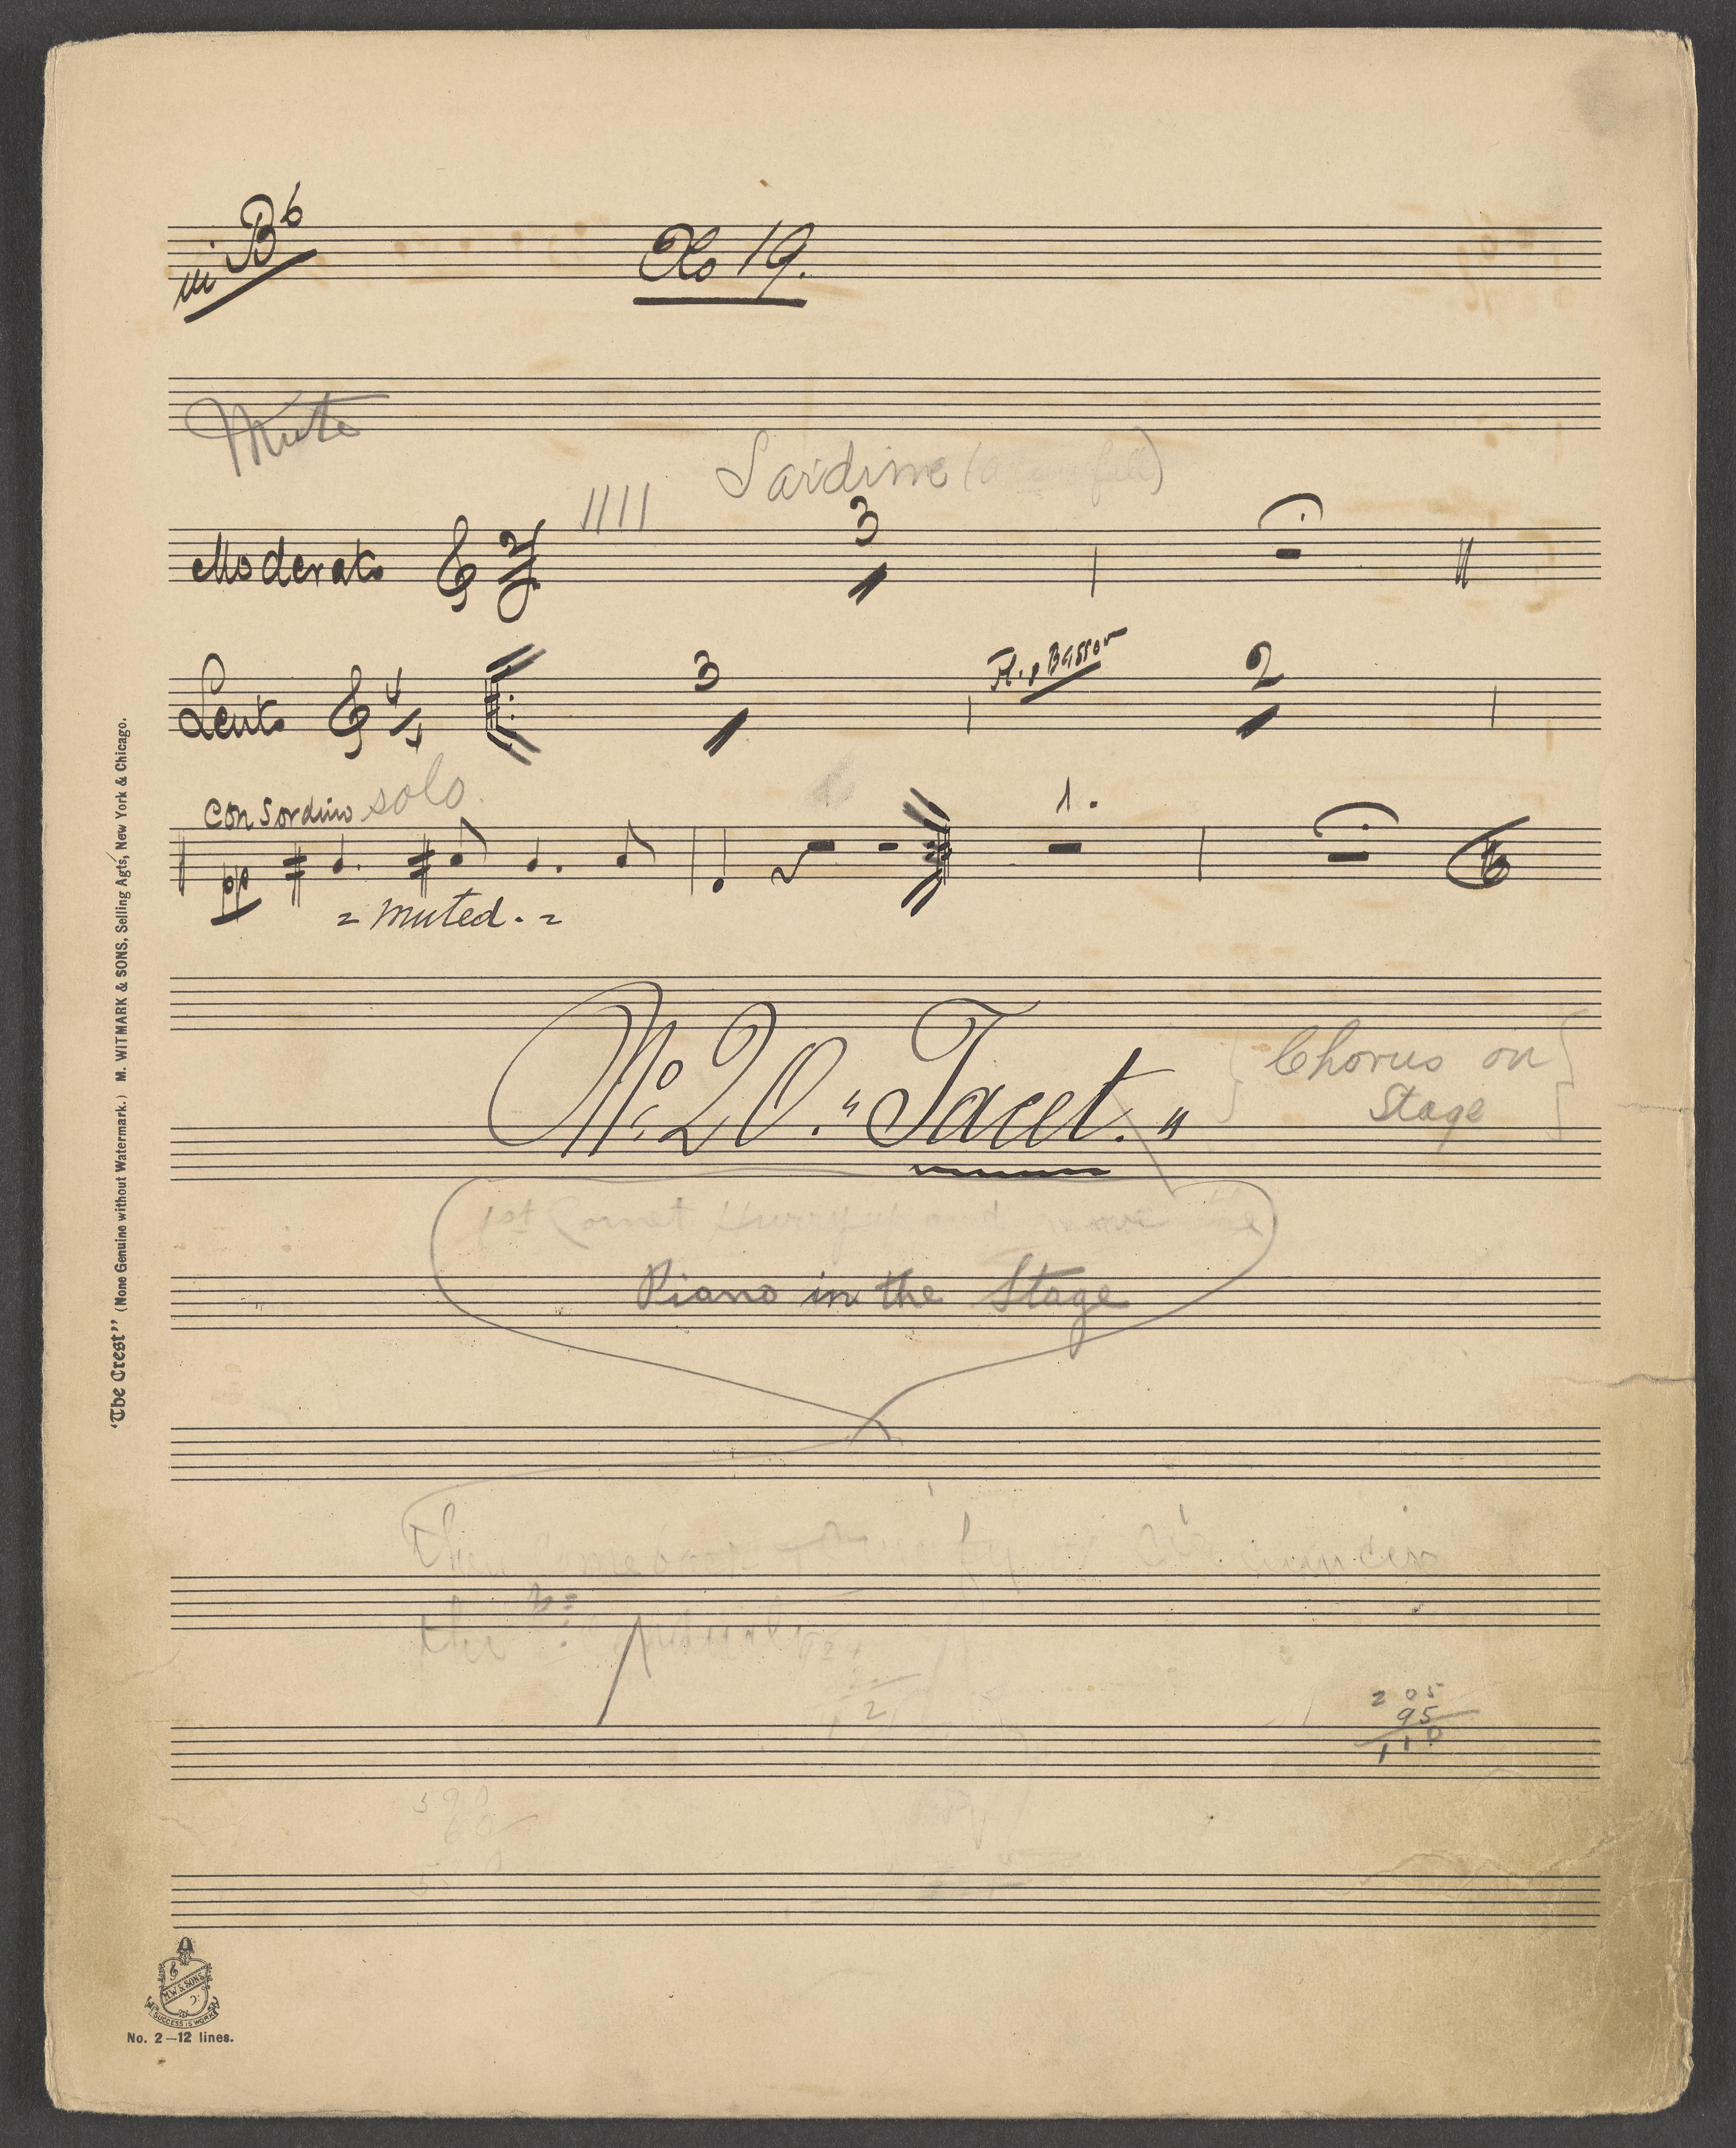 in B♭
No 19.
Mute
Sardine (
Moderato 2/4 3
Lento 4/4 3 Fl. & Basson 2
Con Sordino solo 1.
pp
= muted. =
No. 20. "Tacet."
{ Chorus on }
Stage
1st Cornet Hurry up and
Piano in the Stage
Then come back
the
205
95
110
590
60
"The Crest" (None Genuine without Watermark.) M. WITMARK & SONS, Selling Agts, New York & Chicago.
M.W. & SONS
SUCCESS IS WORK
No. 2—12 lines.